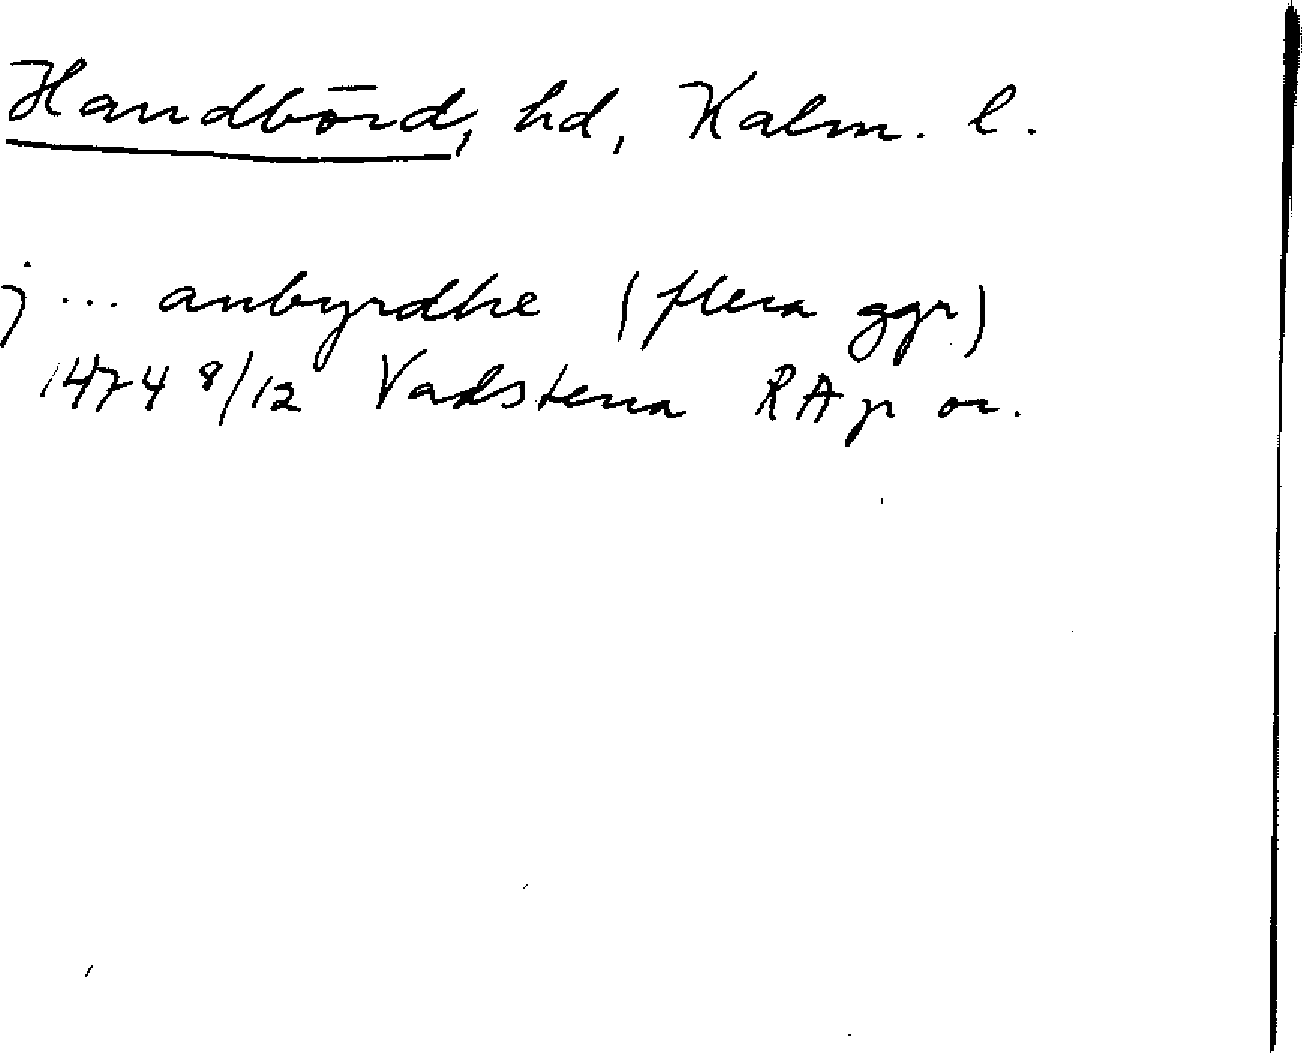 Handbörd, hd, Kalm. l.
j ... anbyrdhe (flera ggr)
1474 8/12 Vadstena RAp or.